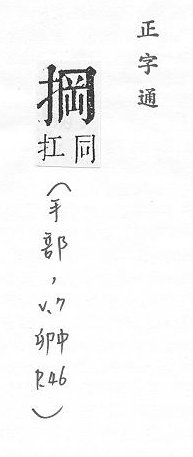 正字通
掆
同扛
（手部，v.7卯中P.46）